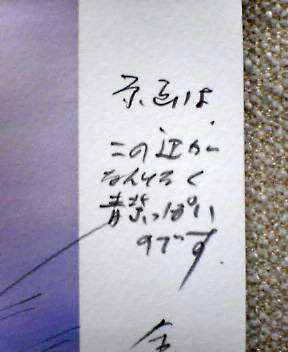 原画は
この辺が
なんとなく
青紫っぽい
のです
全